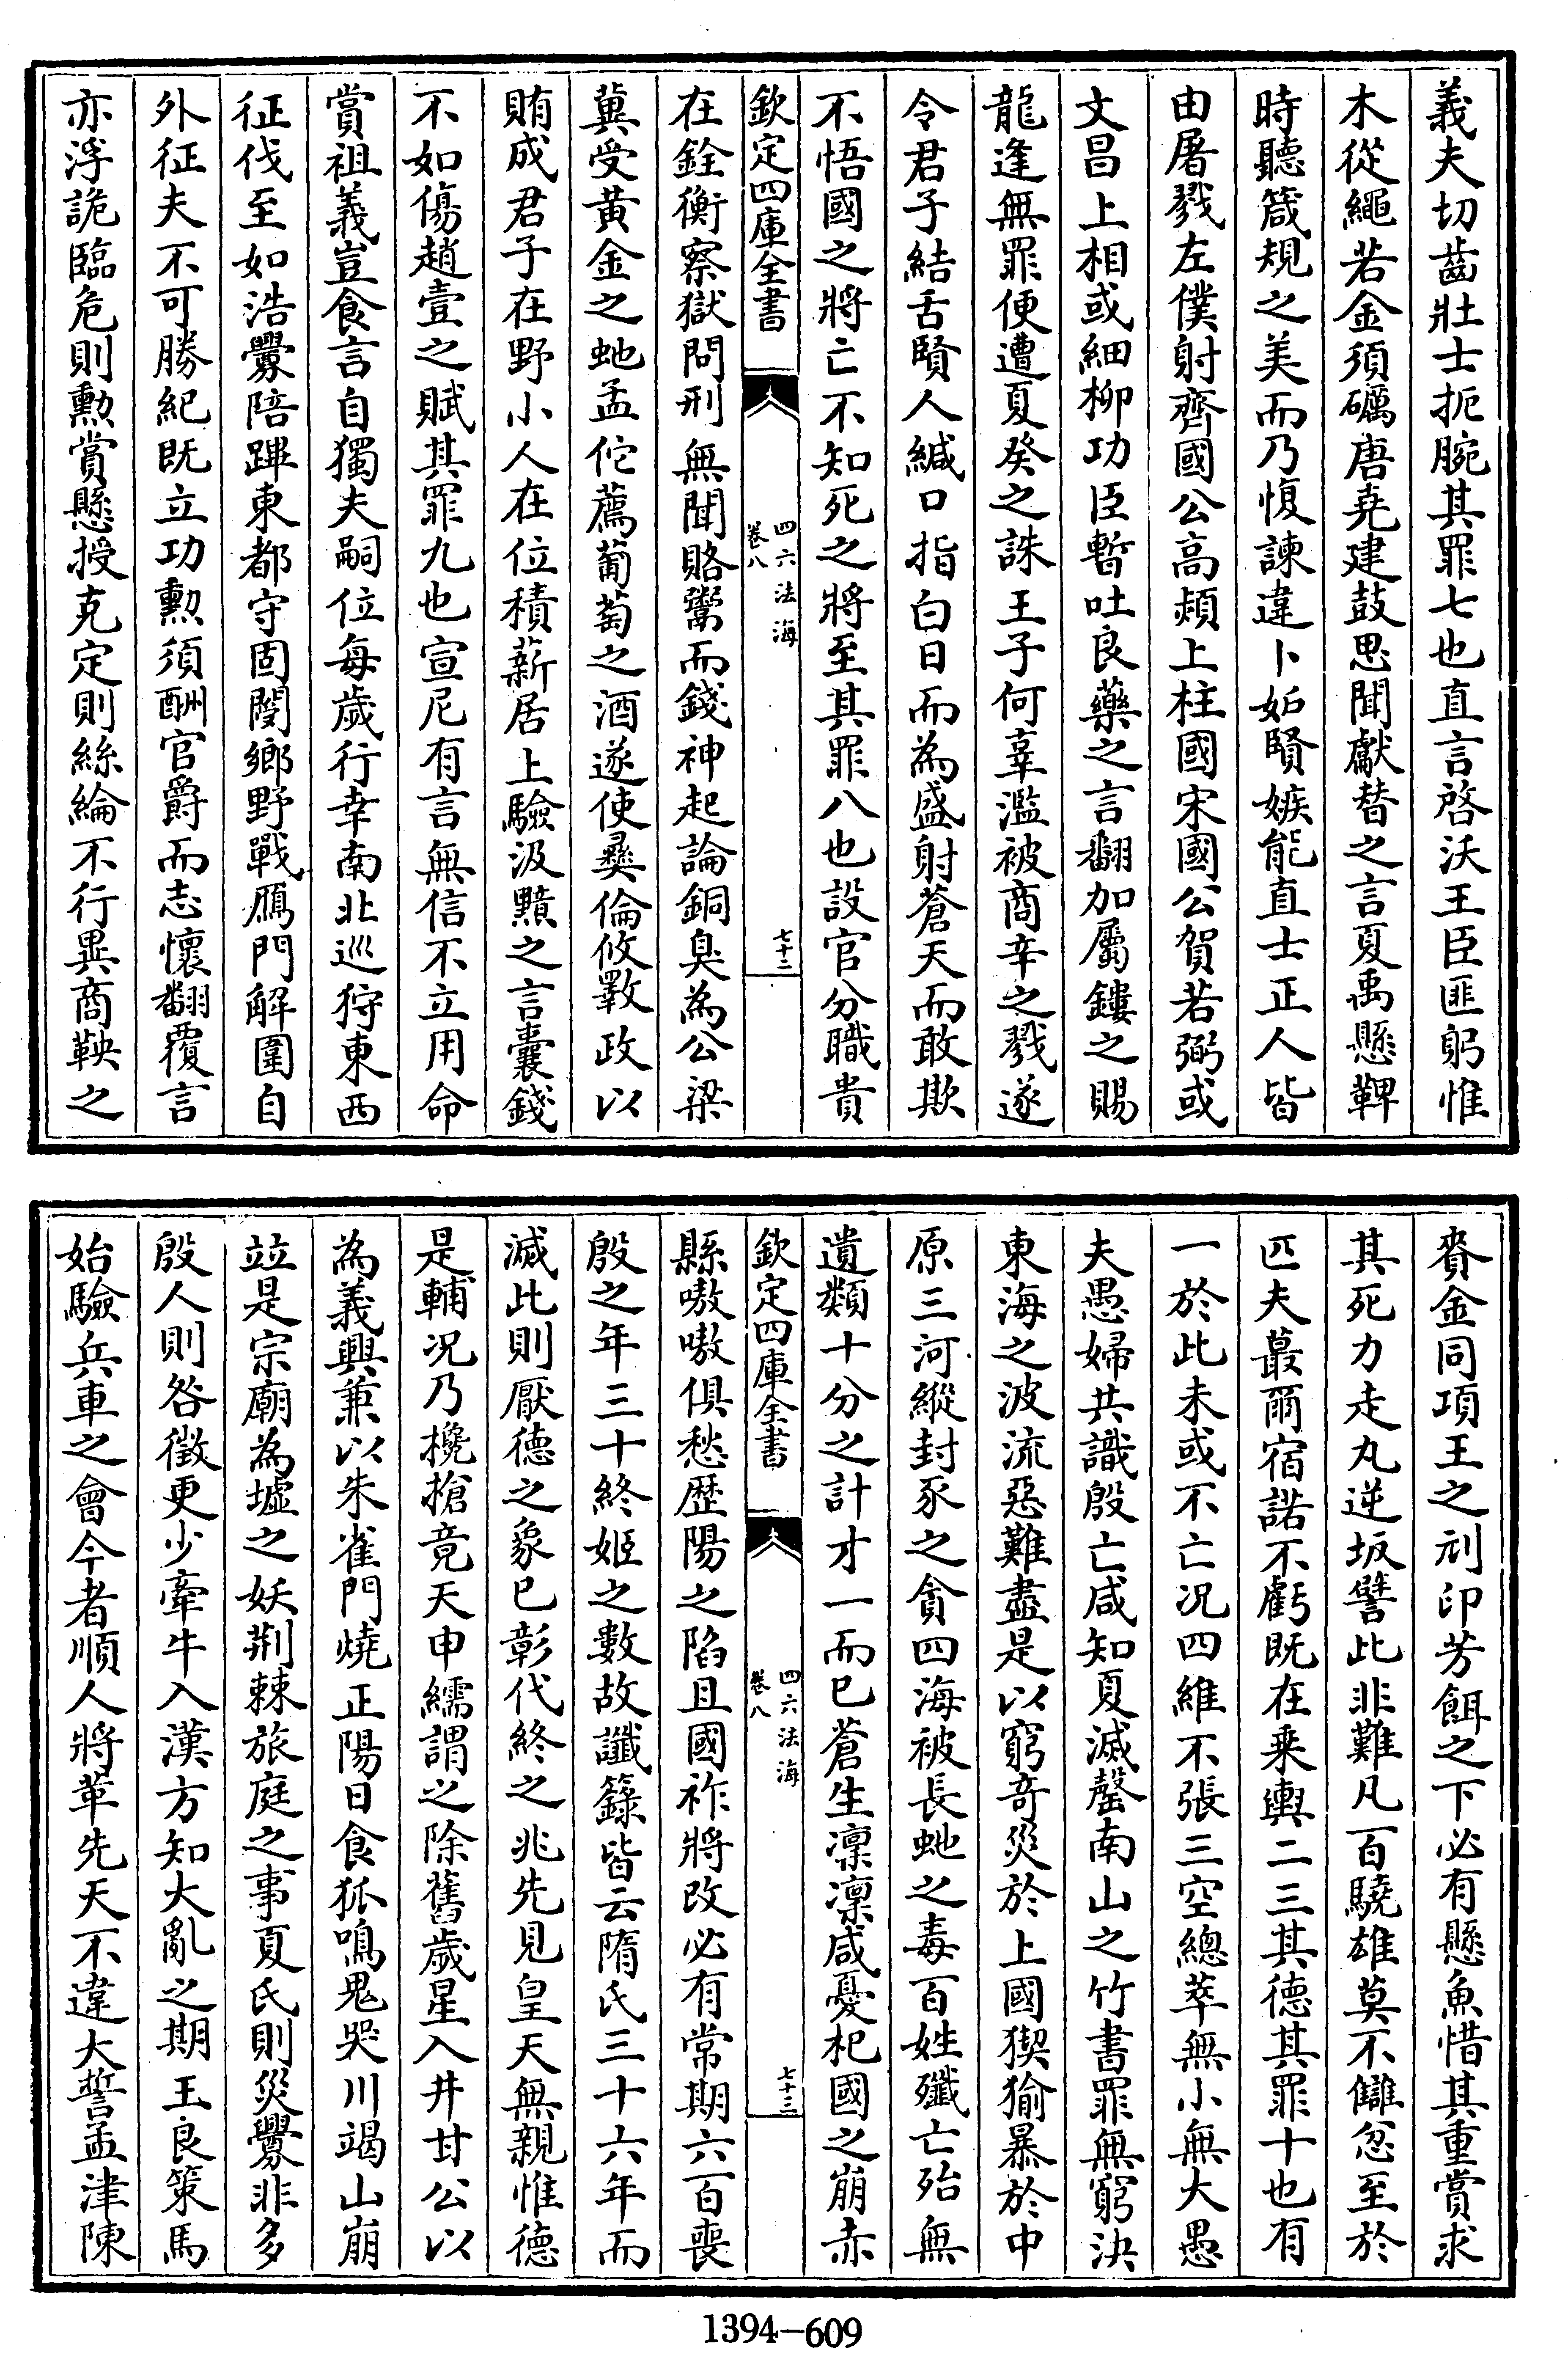 義夫切齒壯士扼腕其罪七也直言啓沃王臣匪躬惟
木從繩若金須礪唐堯建鼓思聞獻替之言夏禹懸鞞
時聽箴規之美而乃愎諫違卜妬賢嫉能直士正人皆
由屠戮左僕射齊國公高熲上柱國宋國公賀若弼或
文昌上相或細柳功臣暫吐良藥之言翻加屬鏤之賜
龍逢無罪便遭夏癸之誅王子何辜濫被商辛之戮遂
令君子結舌賢人緘口指白日而為盛射蒼天而敢欺
不悟國之將亡不知死之將至其罪八也設官分職貴
欽定四庫全書 四六法海 卷八 七十二
在銓衡察獄問刑無聞賂鬻而錢神起論銅臭為公梁
冀受黃金之虵孟佗薦葡萄之酒遂使彝倫攸斁政以
賄成君子在野小人在位積薪居上驗汲黯之言囊錢
不如傷趙壹之賦其罪九也宣尼有言無信不立用命
賞祖義豈食言自獨夫嗣位每歲行幸南北巡狩東西
征伐至如浩亹陪蹕東都守固閿鄉野戰鴈門解圍自
外征夫不可勝紀既立功勲須酬官爵而志懷翻覆言
亦浮詭臨危則勲賞懸授克定則絲綸不行異商鞅之
賚金同項王之刓印芳餌之下必有懸魚惜其重賞求
其死力走丸逆坂譬此非難凡百驍雄莫不讎忿至於
匹夫蕞爾宿諾不虧既在乗輿二三其德其罪十也有
一於此未或不亡况四維不張三空總萃無小無大愚
夫愚婦共識殷亡咸知夏滅罄南山之竹書罪無窮決
東海之波流惡難盡是以窮奇災於上國猰㺄暴於中
原三河縱封豕之貪四海被長虵之毒百姓殲亡殆無
遺類十分之計才一而已蒼生凜凜咸憂杞國之崩赤
欽定四庫全書 四六法海 卷八 七十三
縣嗷嗷俱愁歴陽之陷且國祚將改必有常期六百喪
殷之年三十終姬之數故讖籙皆云隋氏三十六年而
滅此則厭德之象已彰代終之兆先見皇天無親惟德
是輔况乃攙搶竟天申繻謂之除舊歲星入井甘公以
為義興兼以朱雀門燒正陽日食狐鳴鬼哭川竭山崩
竝是宗廟為墟之妖荆棘旅庭之事夏氏則災釁非多
殷人則咎徵更少牽牛入漢方知大亂之期王良策馬
始驗兵車之會今者順人將革先天不違大誓孟津陳
1394-609